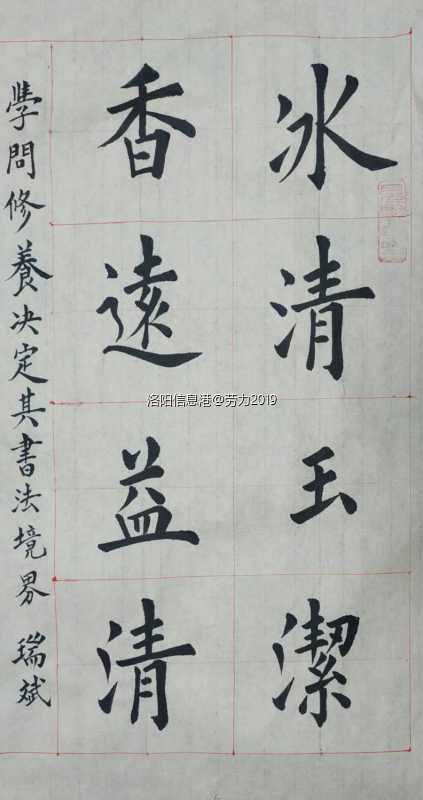 冰清玉潔
香遠益清
學問修養决定其書法境界 瑞斌
洛阳信息港@劳力2019